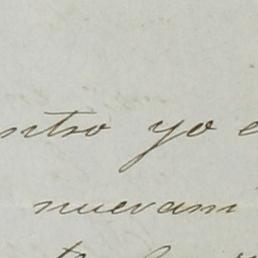 ntro yo e
nuevam